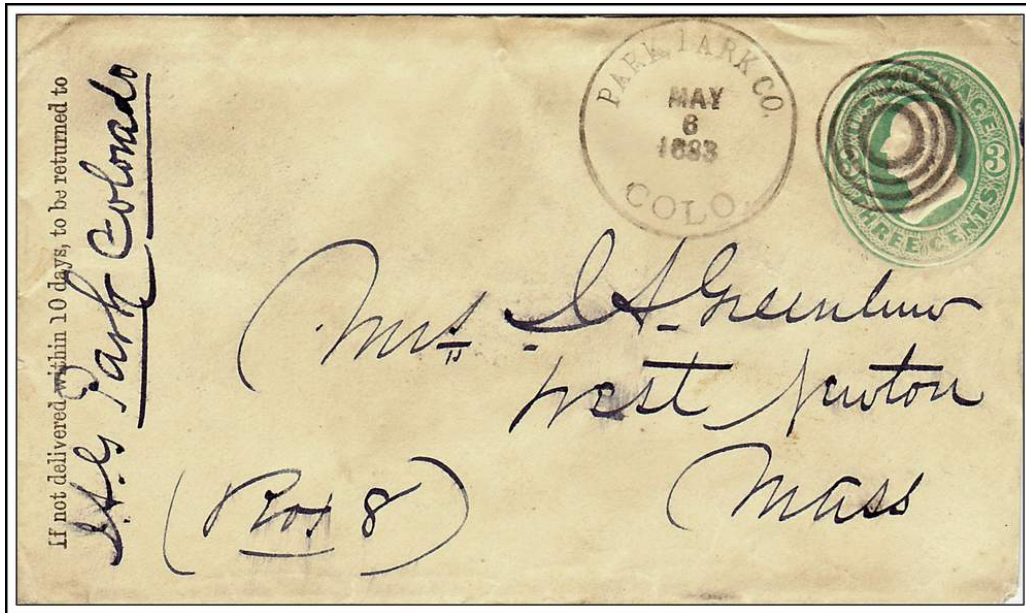 If not delivered within 10 days, to be returned to
Park Colorado
PARK, PARK CO.
MAY
6
1883
COLO.
3
THREE CENTS
Mrs
West Newton
Mass
(Box 8)